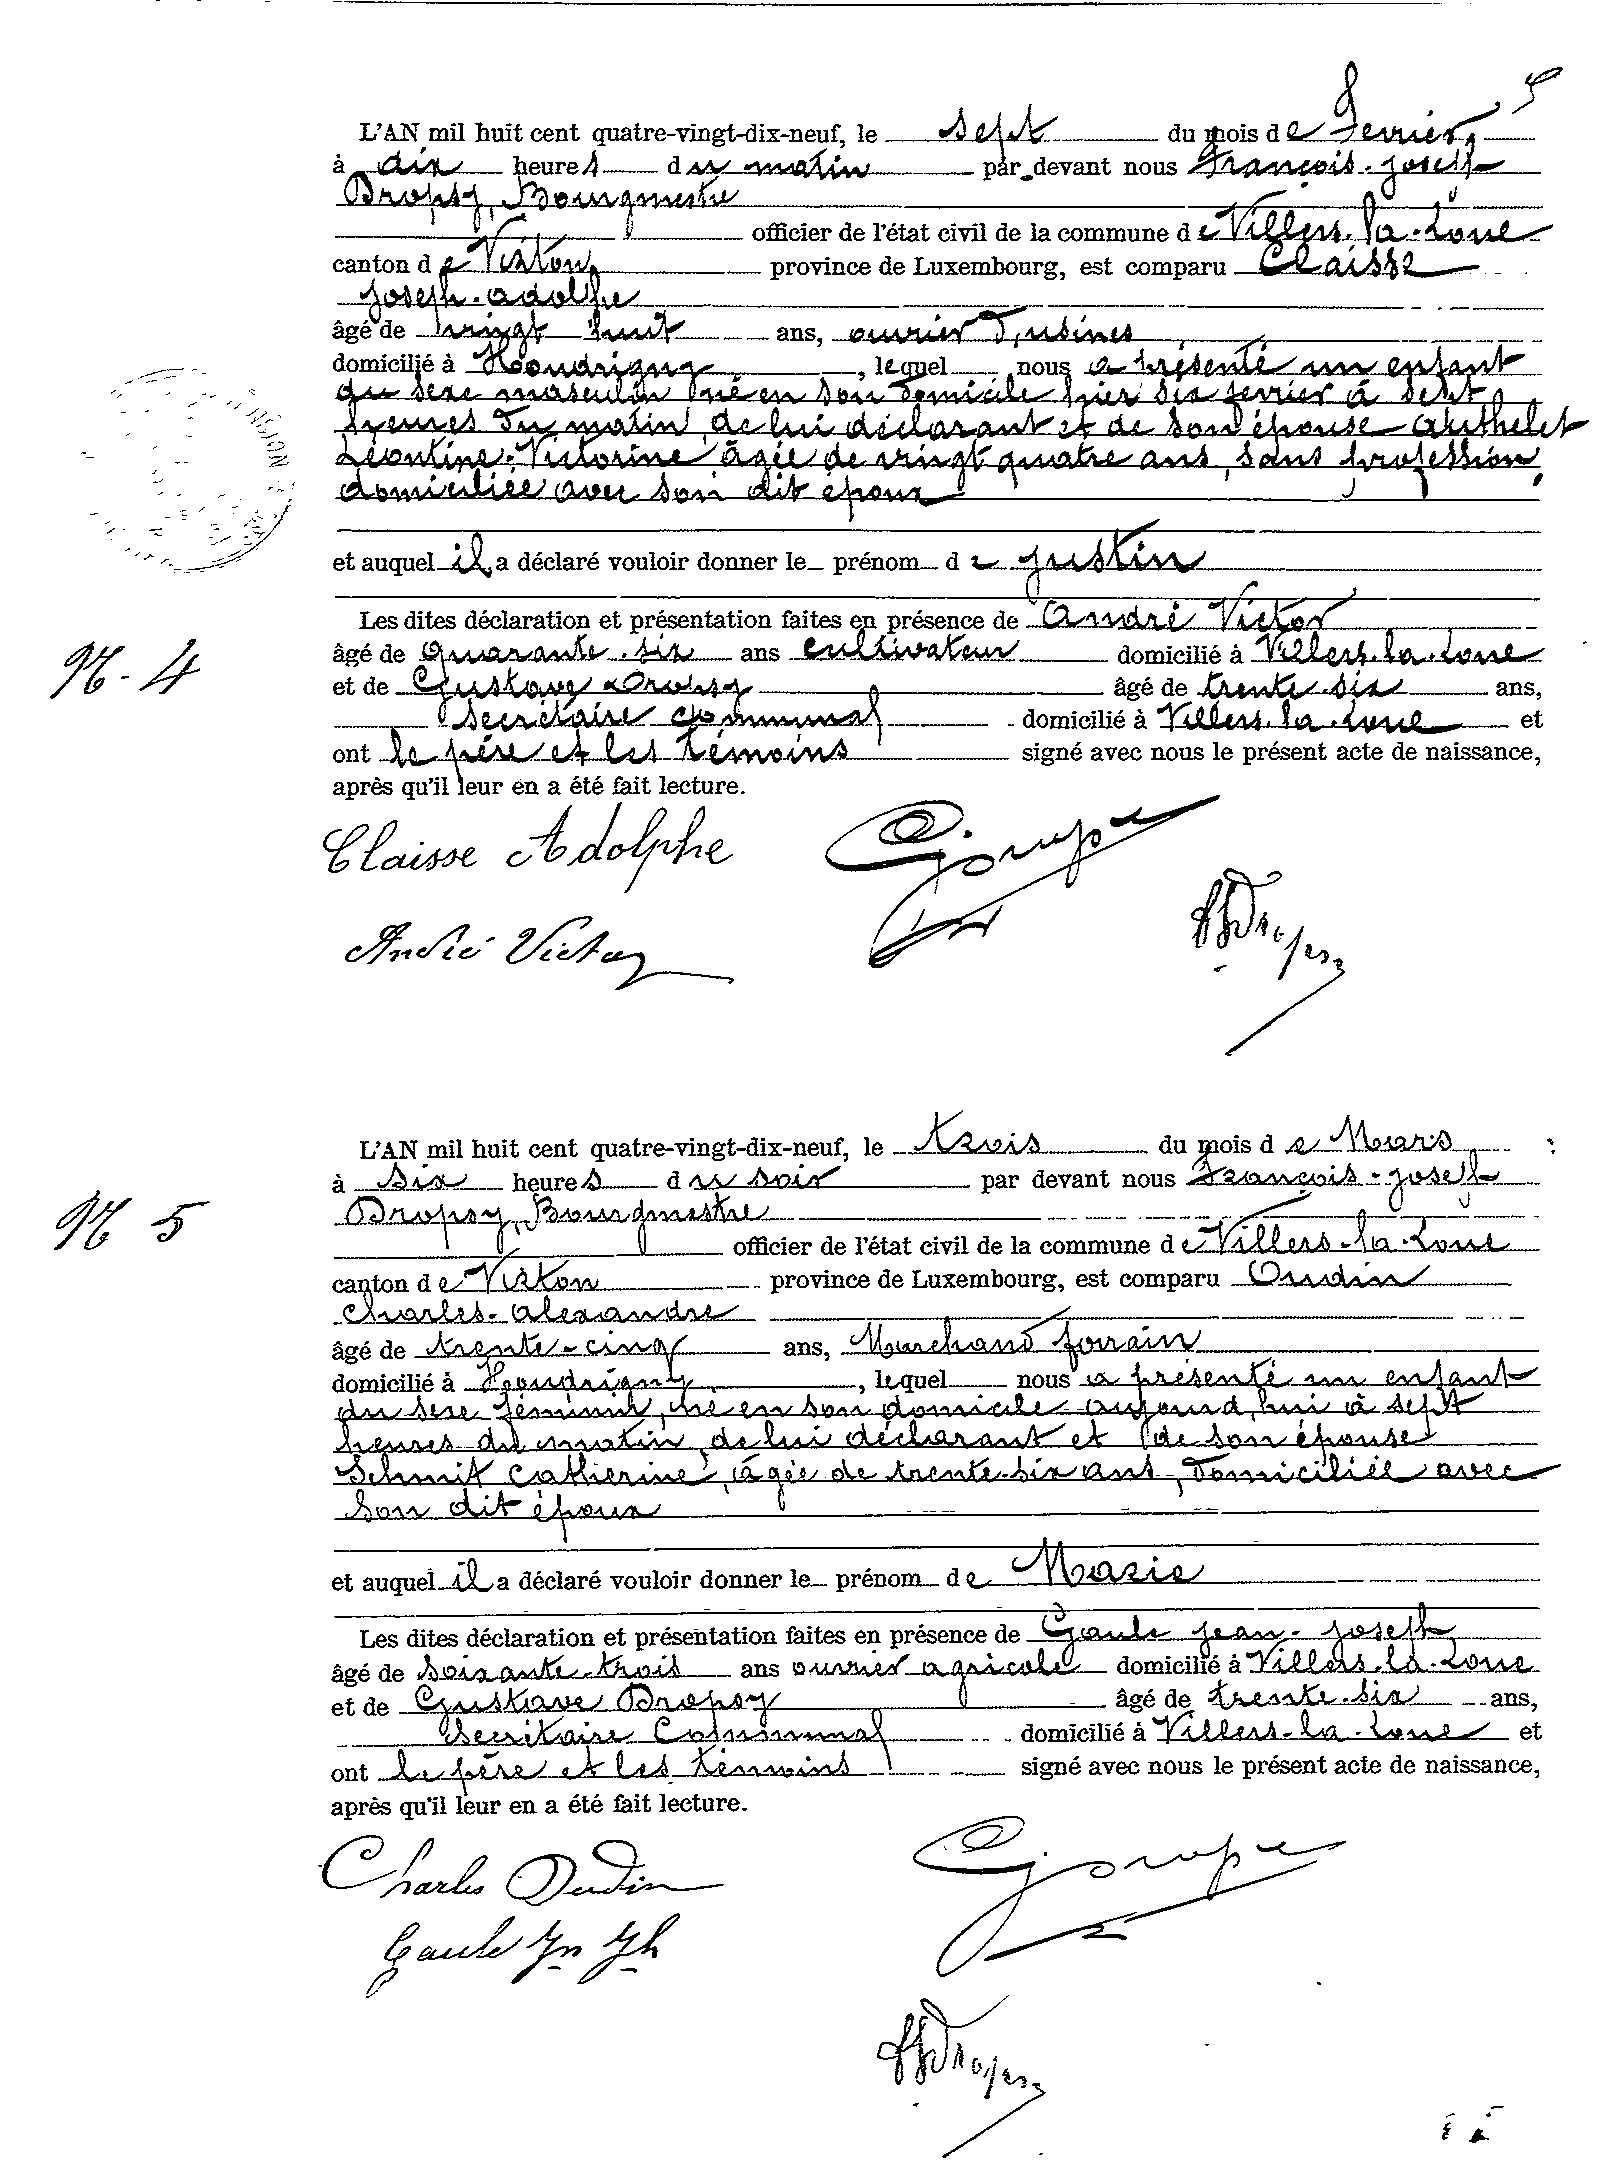 5
L'AN mil huit cent quatre-vingt-dix-neuf, le sept du mois de Fevrier,
à dix heures du matin par devant nous François-Joseph
Dropsy, Bourgmestre
officier de l'état civil de la commune de Villers-la-Loue
canton de Virton, province de Luxembourg, est comparu Claisse
Joseph-Adolfe
âgé de vingt huit ans, ouvrier d'usines
domicilié à Houdrigny, lequel nous a présenté un enfant
du sexe masculin né en son domicile hier six fevrier à sept
heures du matin, de lui déclarant et de son épouse Arthelet
Léontine-Victorine âgée de vingt quatre ans, sans profession,
domiciliée avec son dit époux
et auquel il a déclaré vouloir donner le prénom de Justin
Les dites déclaration et présentation faites en présence de André Victor
N. 4
âgé de quarante-six ans cultivateur domicilié à Villers-la-Loue
et de Gustave Dropsy âgé de trente-six ans,
secrétaire communal domicilié à Villers-la-Loue et
ont le père et les témoins signé avec nous le présent acte de naissance,
après qu'il leur en a été fait lecture.
Claisse Adolphe
André Victor
FJDropsy
L'AN mil huit cent quatre-vingt-dix-neuf, le trois du mois de Mars
à six heures du soir par devant nous François-Joseph
N 5
Dropsy, Bourgmestre
officier de l'état civil de la commune de Villers-la-Loue
canton de Virton province de Luxembourg, est comparu Oudin
Charles-Alexandre
âgé de trente-cinq ans, Marchand forain
domicilié à Houdrigny, lequel nous a présenté un enfant
du sexe féminin, né en son domicile aujourd'hui à sept
heures du matin, de lui déclarant et de son épouse
Schmit Catherine, âgée de trente-six ans, domiciliée avec
son dit époux
et auquel il a déclaré vouloir donner le prénom de Marie
Les dites déclaration et présentation faites en présence de Gaule Jean-Joseph
âgé de soixante-trois ans ouvrier agricole domicilié à Villers-la-Loue
et de Gustave Dropsy âgé de trente-six ans,
secrétaire Communal domicilié à Villers-la-Loue et
ont le père et les témoins signé avec nous le présent acte de naissance,
après qu'il leur en a été fait lecture.
Charles Oudin
Gaule Jn Jh
FJDropsy